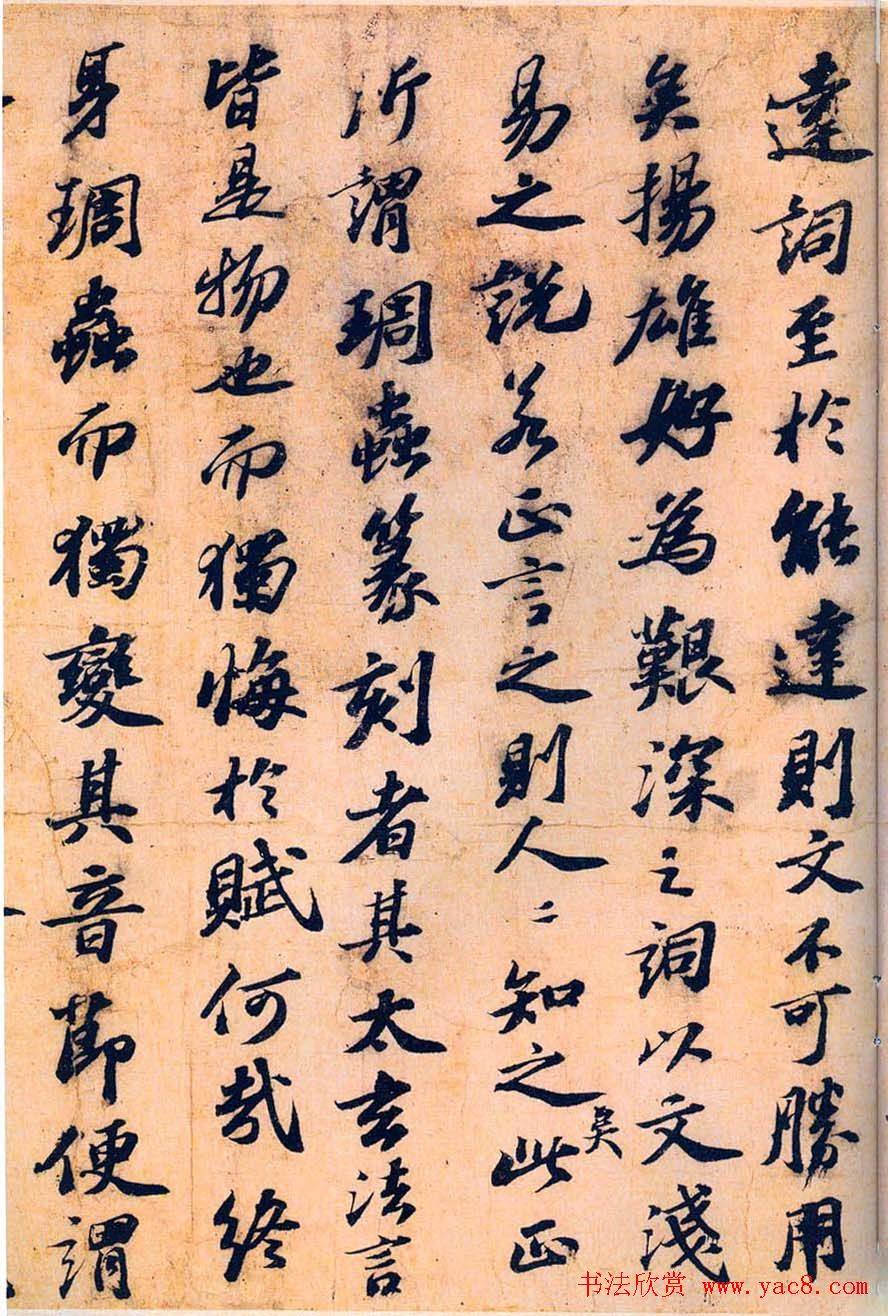 達詞至於能達則文不可勝用
矣揚雄好為艱深之詞以文淺
易之說若正言之則人〻知之矣此正
所謂琱蟲篆刻者其太玄法言
皆是物也而獨悔於賦何哉終
身琱蟲而獨變其音節便謂
书法欣赏 www.yac8.com